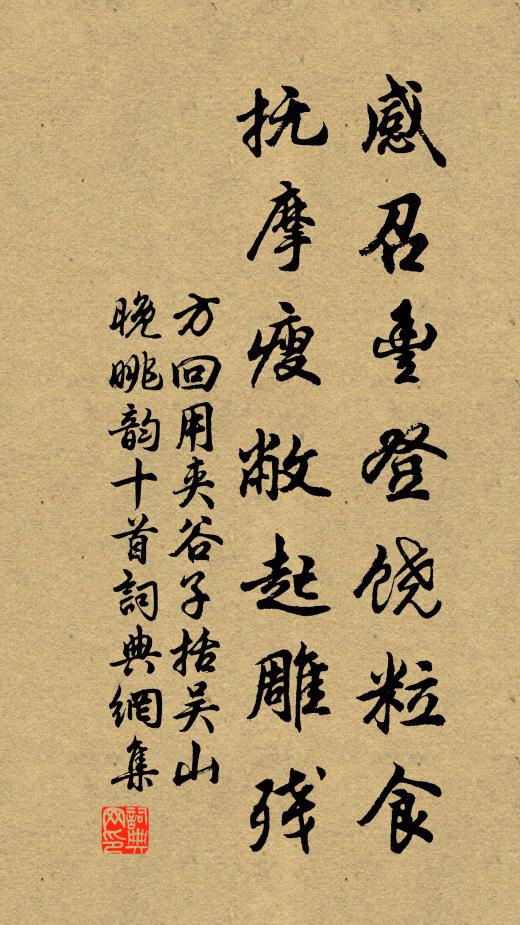 感召豊登饶粒食
抚摩瘦敝起雕残
方回用夹谷子括吴山
晚眺韵十首詞典網集
詞典網印